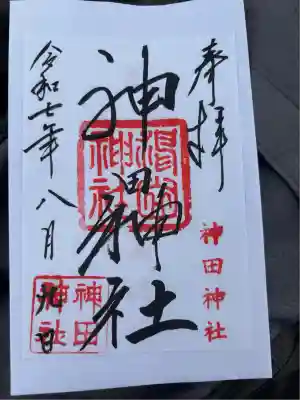 奉拝
神田神社
神田神社
令和七年八月九日
神田
神社
神社